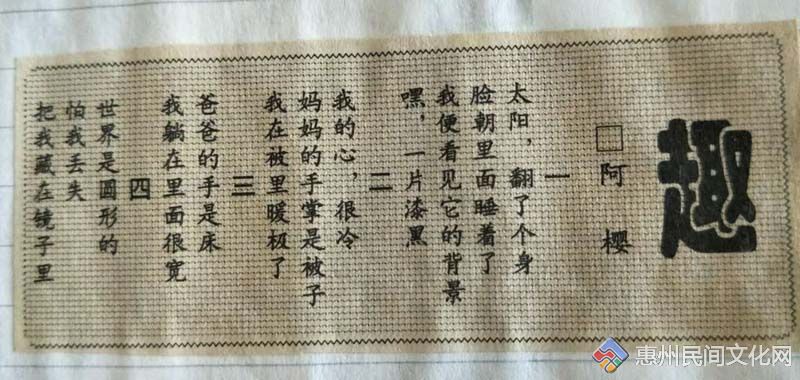 趣
□阿樱
一
太阳，翻了个身
脸朝里面睡着了
我便看见它的背景
嘿，一片漆黑
二
我的心，很冷
妈妈的手掌是被子
我在被里暖极了
三
爸爸的手是床
我躺在里面很宽
四
世界是圆形的
怕我丢失
把我藏在镜子里
惠州民间文化网